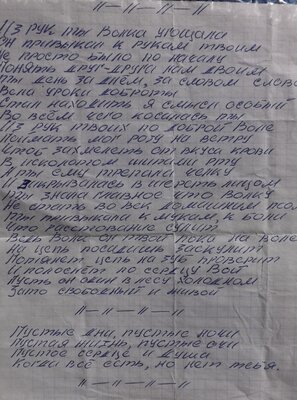 Из рук ты волка угощала
Он привыкал к рукам твоим
Не просто было по началу
Понять друг-друга вам двоим
Ты день за днём, за словом слово
Вела уроки доброты
Стал находить я смысл особый
Во всём чего касалась ты
Из рук твоих по доброй воле
Хватать мог роту не ветру
Чтоб от вкуса крови
В исколотом шипами рту
А ты ему трепала чёлку
И зарывалась в шерсть лицом
Ты знала главное что волку
Не стать во век домашним псом
Ты привыкала к мукам, к боли
Что расставание сулит
Ведь волк он твой пока на воле
На цепь посадишь заскулит
Потянет цепь на зуб проверит
И полоснёт по сердцу вой
Пусть он один в лесу холодном
Зато свободный и живой
Пустые дни, пустые ночи
Пустая жизнь, пустые очи
Пустое сердце и душа
Когда всё есть, но нет тебя.